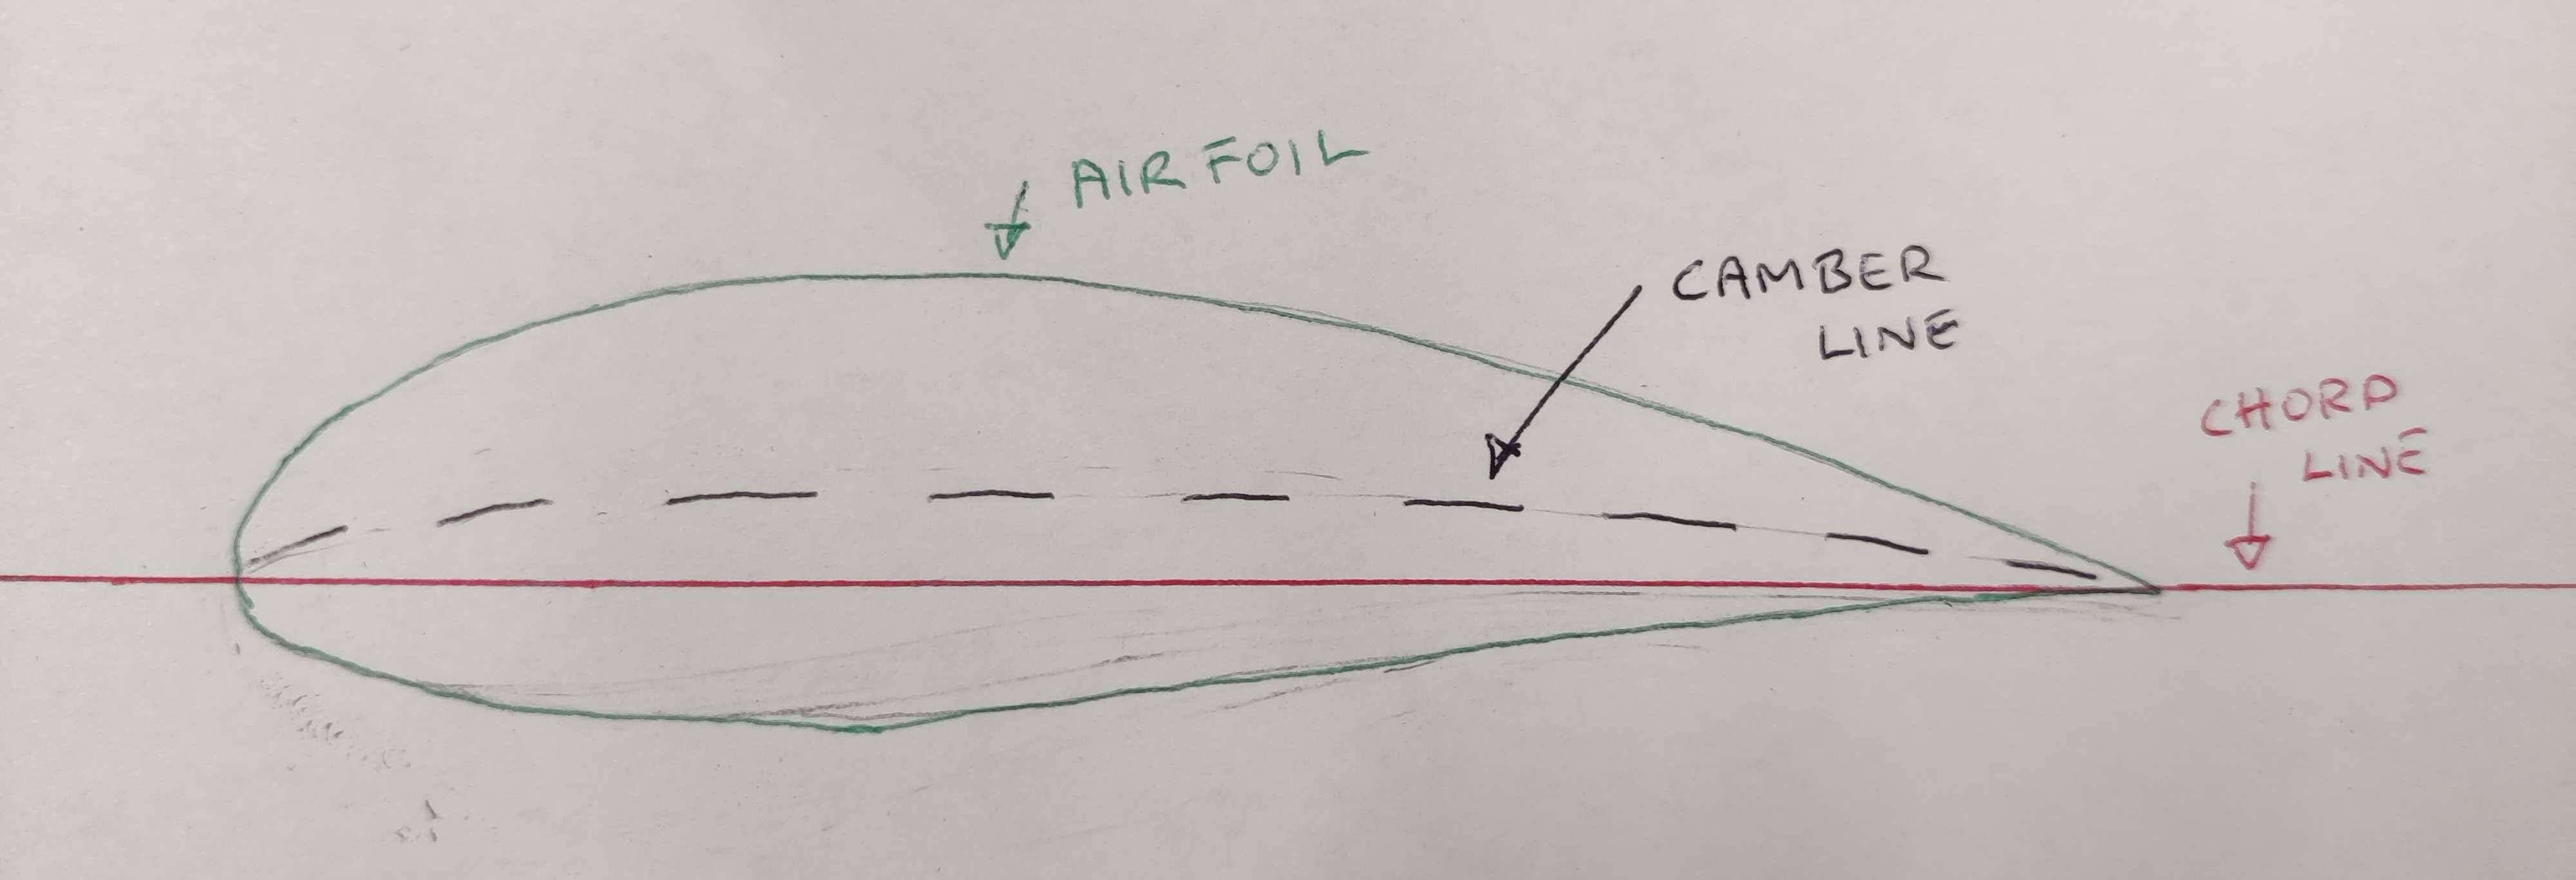 AIRFOIL
CAMBER
LINE
CHORD
LINE